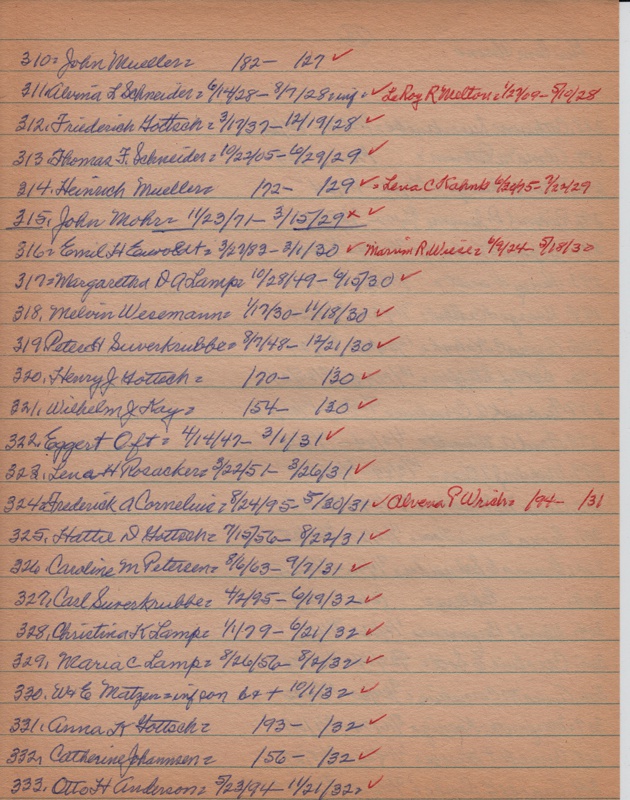 310= John Mueller= /82- /27 ✓
311. Alvina L Schneider= 6/14/28- 8/7/28= inf= ✓ LeRoy R Melton= 1/27/09- 5/10/28
312. Friederich Gottsch= 3/17/37- 12/19/28 ✓
313 Thomas F. Schneider= 10/22/05- 6/29/29 ✓
314. Heinrich Mueller= /72- /29 ✓= Lena C Kahnk 6/20/75- 7/22/29
315. John Mohr= 11/23/71- 3/15/29 x ✓
316= Emil H Ewoldt= 3/27/83- 3/1/30 ✓ Marvin R. Wiese= 6/9/24- 5/18/30
317= Margaretha D A Lamp= 10/28/49- 6/15/30 ✓
318. Melvin Wesemann= 1/17/30- 11/18/30 ✓
319 Peter H Suverkrubbe= 8/7/48- 12/21/30 ✓
320. Henry J Gottsch= /70- /30 ✓
321. Wilhelm J Kay= /54- /30 ✓
322. Eggert Oft= 4/14/47- 3/1/31 ✓
323. Lena H Rosacker= 3/22/51- 3/26/31 ✓
324= Frederick A Cornelius= 8/24/95- 5/30/31 ✓ Alvena P Wrich= /94- /31
325. Hattie D Gottsch= 7/15/56- 8/22/31 ✓
326. Caroline M Petersen= 8/6/63- 9/7/31 ✓
327. Carl Suverkrubbe= 4/2/95- 6/19/32 ✓
328. Christina K Lamp= 1/1/79- 6/21/32 ✓
329. Maria C Lamp= 8/26/56- 8/2/32 ✓
330. W E Matzen= inf son b & + 10/1/32 ✓
331. Anna K Gottsch= /93- /32 ✓
332. Catherine Johannsen= /56- /32 ✓
333. Otto H Anderson= 5/23/94- 11/21/32= ✓